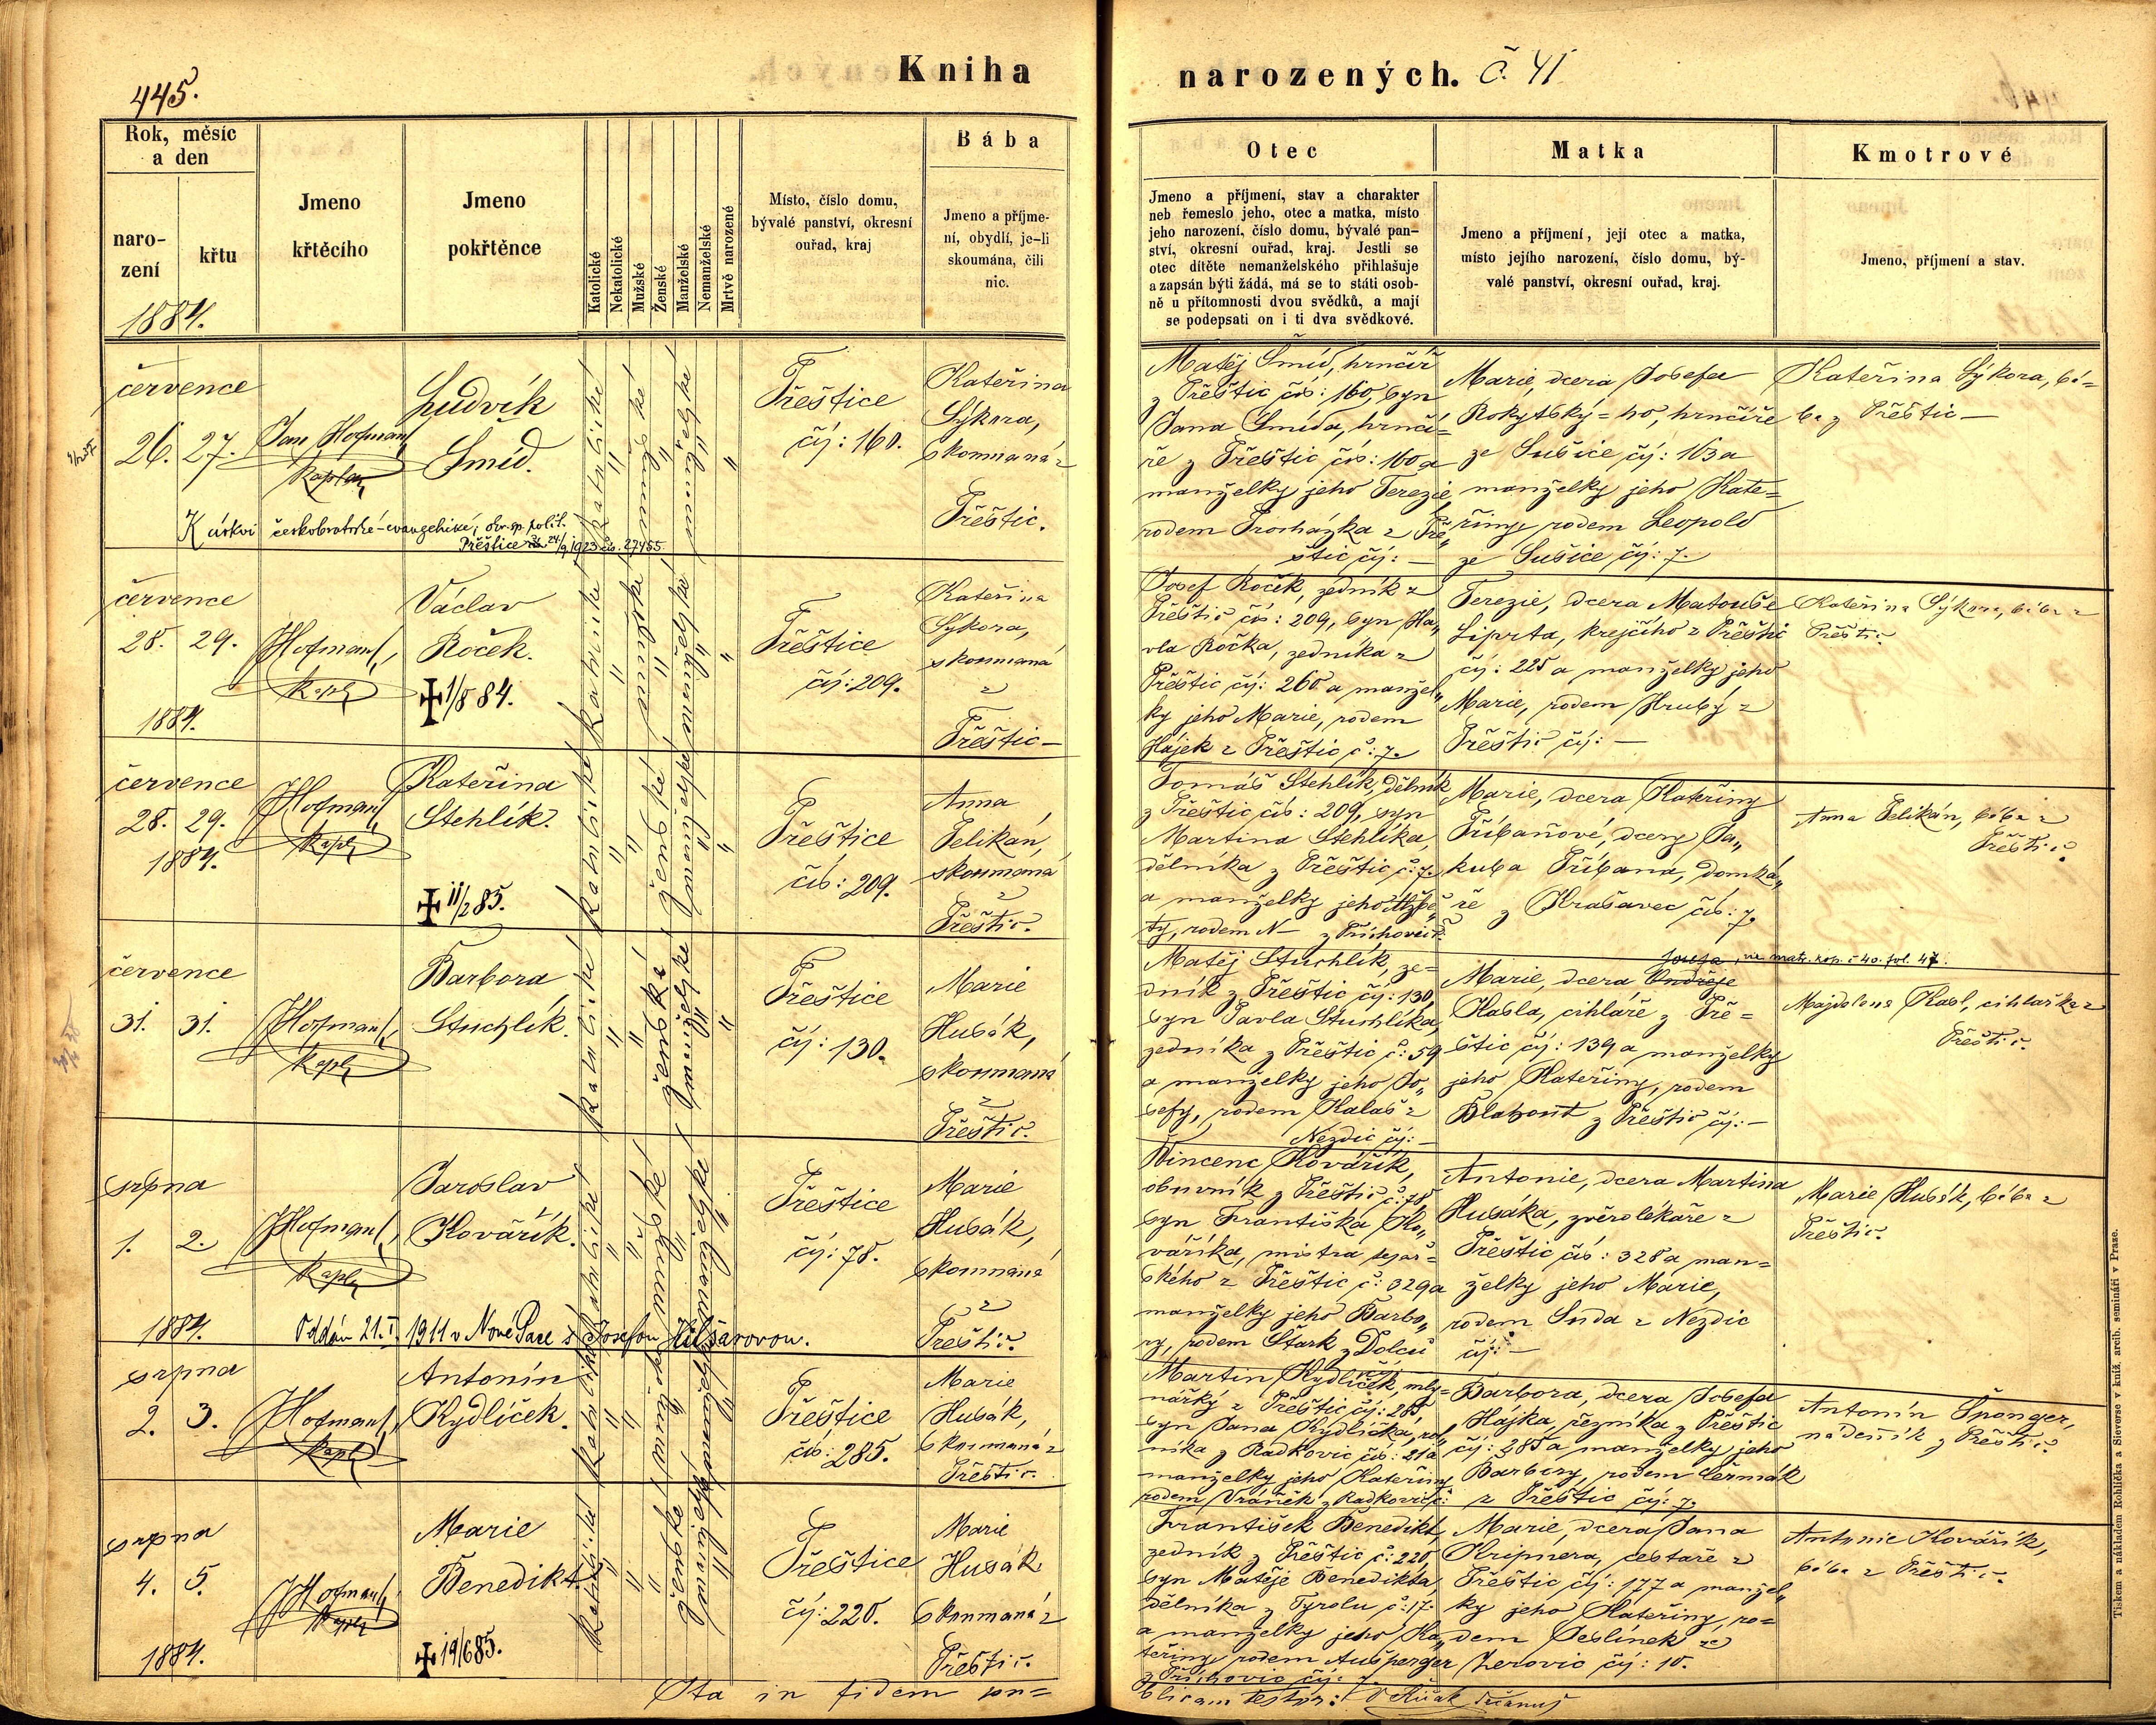 445.
Kniha
narozených. Č. 41
Rok, měsíc
a den
naro-
zení
křtu
1884.
Jmeno
křtěcího
Jmeno
pokřtěnce
Katolické
Nekatolické
Mužské
Ženské
Manželské
Nemanželské
Mrtvě narozené
Místo, číslo domu,
bývalé panství, okresní
ouřad, kraj
Bába
Jmeno a příjme-
ní, obydlí, je-li
skoumána, čili
nic.
Otec
Jmeno a příjmení, stav a charakter
neb řemeslo jeho, otec a matka, místo
jeho narození, číslo domu, bývalé pan-
ství, okresní ouřad, kraj. Jestli se
otec dítěte nemanželského přihlašuje
a zapsán býti žádá, má se to státi osob-
ně u přítomnosti dvou svědků, a mají
se podepsati on i ti dva svědkové.
Matka
Jmeno a příjmení, její otec a matka,
místo jejího narození, číslo domu, bý-
valé panství, okresní ouřad, kraj.
Kmotrové
Jmeno, příjmení a stav.
července
26. 27.
Jan Hofman
kaplan
Ludvík
Šmíd.
katolické
"
mužské
"
manželské
"
"
Přeštice
čís: 160.
Kateřina
Sýkora,
skoumaná z
Přeštic.
Matěj Šmíd, hrnčíř
z Přeštic čís: 160, syn
Jana Šmída, hrnčí=
ře z Přeštic čís: 160 a
manželky jeho Terezie
rodem Procházka z Pře„
štic čís: —
Marie, dcera Josefa
Rokytský=ho, hrnčíře
ze Sušice čís: 163 a
manželky jeho Kate=
řiny rodem Leopold
ze Sušice čís: 7.
Kateřina Sýkora, bá=
ba z Přeštic —
K církvi českobratrské-evangelické, okr. sp. polit.
Přeštice 24/9 1923 čís. 27455.
července
28. 29.
1884.
Hofman,
kapl.
Václav
Roček.
✠ 1/8 84.
katolické
"
mužské
"
manželské
"
"
Přeštice
čís: 209.
Kateřina
Sýkora,
skoumaná
z
Přeštic —
Josef Roček, zedník z
Přeštic čís: 209, syn Ha„
vla Ročka, zedníka z
Přeštic čís: 260 a manžel„
ky jeho Marie, rodem
Hájek z Přeštic č: 7.
Terezie, dcera Matouše
Liprta, krejčího z Přeštic
čís: 225 a manželky jeho
Marie, rodem Hrubý z
Přeštic čís: —
Kateřina Sýkora, bába z
Přeštic.
července
28. 29.
1884.
Hofman
kapl.
Kateřina
Stehlík.
✠ 11/2 85.
katolické
"
"
ženské
manželské
"
"
Přeštice
čís: 209.
Anna
Pelikán,
skoumaná
z
Přeštic.
Tomáš Stehlík, dělník
z Přeštic čís: 209, syn
Martina Stehlíka,
dělníka z Přeštic č: 7.
a manželky jeho Alžbě„
ty, rodem N— z Příchovic č:
Marie, dcera Kateřiny
Příbaňové, dcery Ja„
kuba Příbana, domká„
ře z Krašavec čís: 7.
Anna Pelikán, bába z
Přeštic.
července
31. 31.
Hofman,
kapl.
Barbora
Stuchlík.
katolické
"
"
ženské
manželské
"
"
Přeštice
čís: 130.
Marie
Husák,
skoumaná
z
Přeštic.
Matěj Stuchlík, ze=
dník z Přeštic čís: 130,
syn Pavla Stuchlíka,
zedníka z Přeštic č: 59
a manželky jeho Jo„
sefy, rodem Kalaš z
Nezdic čís: —
Josefa, viz matr. kop. č 40. fol. 47.
Marie, dcera Ondřeje
Kasla, cihláře z Pře=
štic čís: 139 a manželky
jeho Kateřiny, rodem
Blahout z Přeštic čís: —
Majdalena Kasl, cihlařka z
Přeštic.
srpna
1. 2.
1884.
Hofman,
kapl.
Jaroslav
Kovářík.
katolické
"
mužské
"
manželské
"
Přeštice
čís: 78.
Marie
Husák,
skoumaná
z
Přeštic.
Vincenc Kovářík,
obuvník z Přeštic č: 78
syn Františka Ko„
váříka, mistra tesař=
ského z Přeštic č: 329 a
manželky jeho Barbo„
ry, rodem Štark z Dolců
čís:
Antonie, dcera Martina
Husáka, zvěrolékaře z
Přeštic čís: 328 a man=
želky jeho Marie,
rodem Suda z Nezdic
čís: —
Marie Husák, bába z
Přeštic.
Oddán 21.I. 1911 v Nové Pace s Josefou Hilšarovou.
srpna
2. 3.
Hofman,
kapl.
Antonín
Kydlíček.
katolické
"
mužské
"
manželské
"
Přeštice
čís: 285.
Marie
Husák,
skoumaná z
Přeštic.
Martin Kydlíček, mly=
nářský z Přeštic čís: 285
syn Jana Kydlíčka, rol„
níka z Radkovic čís: 21 a
manželky jeho Kateřiny
rodem Vráněk z Radkovic č:
Barbora, dcera Josefa
Hájka, řezníka z Přeštic
čís: 285 a manželky jeho
Barbory, rodem Čermák
z Přeštic čís: 7.
Antonín Šponger,
nadeník z Přeštic.
srpna
4. 5.
1884.
Hofman,
kapl.
Marie
Benedikt.
✠ 19/6 85.
katolické
"
"
ženské
manželské
"
Přeštice
čís: 220.
Marie
Husák
skoumaná z
Přeštic.
František Benedikt,
zedník z Přeštic č: 220,
syn Matěje Benedikta,
dělníka z Tyrolu č: 17.
a manželky jeho Ka„
teřiny, rodem Aušperger
z Příchovic čís: 7.
Marie, dcera Jana
Kripnera, cestáře z
Přeštic čís: 177 a manžel„
ky jeho Kateřiny, ro=
dem Jeslínek ze
Zerovic čís: 10.
Antonie Kovářík,
bába z Přeštic.
Ita in fidem pu=
blicam testor:
Tiskem a nákladem Rohlíčka a Sieverse v kníž. arcib. semináři v Praze.